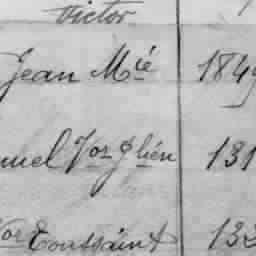 Victor
Jean Mié 1849
nuel Vor Jlién 131
Vor Toussaint 133